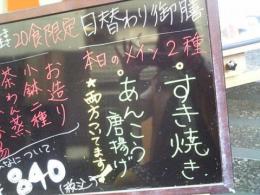 20食限定 日替わり御膳
本日のメイン2種
・すき焼き
・あんこう
唐揚げ
★両方ついてます♪
お造り
小鉢二種
茶わん蒸
について
840
(税込)